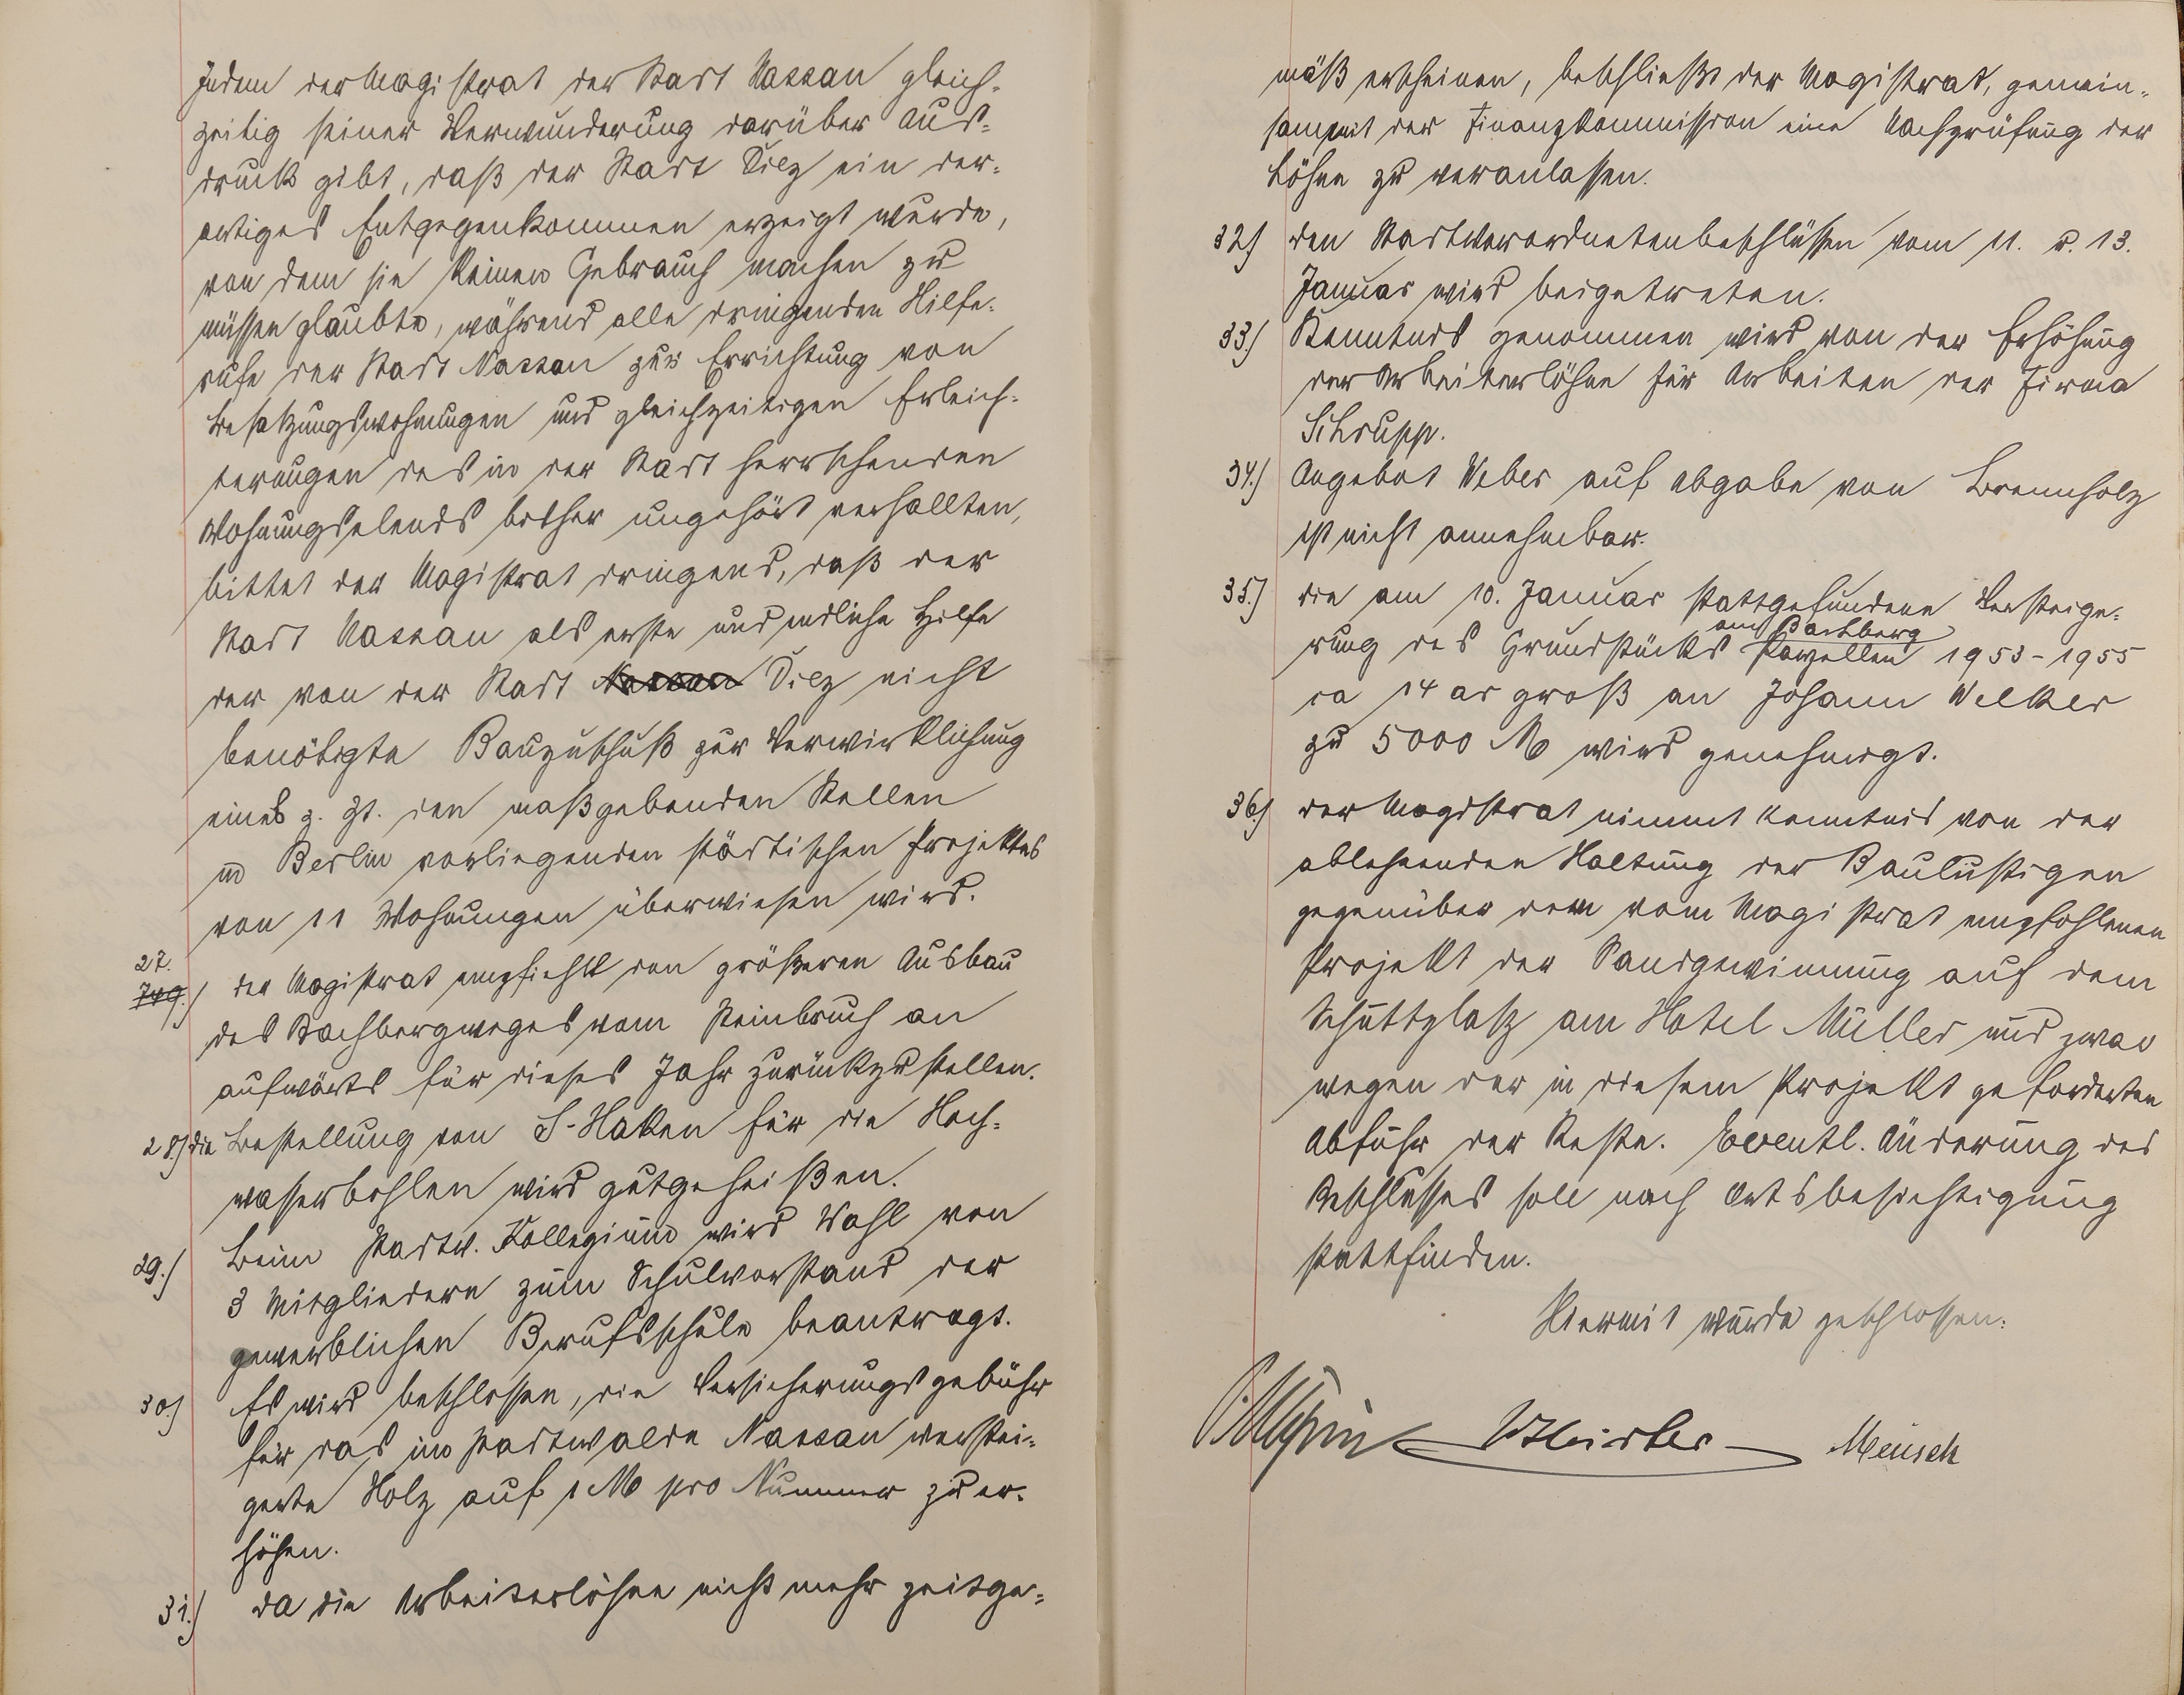 Indem der Magistrat der Stadt Nassau gleich-
zeitig seiner Verwunderung darüber Aus-
druck gibt, daß der Stadt Diez ein der-
artiges Entgegenkommen erzeigt wurde,
von dem sie keinen Gebrauch machen zu
müssen glaubte, während alle dringenden Hilfe-
rufe der Stadt Nassau zur Errichtung von
Besatzungswohnungen und gleichzeitigen Erleich-
terungen des in der Stadt herrschenden
Wohnungselends bisher ungehört verhallten,
bittet der Magistrat dringend, daß der
Stadt Nassau als erste und endliche Hilfe
der von der Stadt Nassau Diez nicht
benötigte Bauzuschuß zur Verwirklichung
eines z. Zt. den maßgebenden Stellen
in Berlin vorliegenden städtischen Projektes
von 11 Wohnungen überwiesen wird.
27.
der Magistrat empfiehlt den größeren Ausbau
des Bachbergweges vom Steinbruch an
aufwärts für dieses Jahr zurückzustellen.
28.) die Bestellung von S-Haken für die Hoch-
wasserbohlen wird gutgeheißen.
29.) Beim Stadtv. Kollegium wird Wahl von
3 Mitgliedern zum Schulvorstand der
gewerblichen Berufsschule beantragt.
30.) Es wird beschlossen, die Versicherungsgebühr
für das im Stadtwalde Nassau verstei-
gerte Holz auf 1 M pro Nummer zu er-
höhen.
31.) Da die Arbeiterlöhne nicht mehr zeitge-
mäß erscheinen, beschließt der Magistrat, gemein-
sam mit der Finanzkommission eine Nachprüfung der
Löhne zu veranlassen.
32.) den Stadtverordnetenbeschlüssen vom 11. u. 13.
Januar wird beigetreten.
33.) Kenntnis genommen wird von der Erhöhung
der Arbeiterlöhne für Arbeiten der Firma
Schrupp.
34.) Angebot Weber auf Abgabe von Brennholz
ist nicht annehmbar.
35.) die am 10. Januar stattgefundene Versteige-
am Bachberg
rung des Grundstücks Parzellen 1953-1955
ca 14 ar groß an Johann Welker
zu 5000 M wird genehmigt.
36.) der Magistrat nimmt Kenntnis von der
ablehnenden Haltung der Baulustigen
gegenüber dem vom Magistrat empfohlenen
Projekt der Sandgewinnung auf dem
Schuttplatz am Hotel Müller und zwar
wegen der in diesem Projekt geforderten
Abfuhr der Reste. Eventl. Änderung des
Beschlusses soll nach Ortsbesichtigung
stattfinden.
Hiermit wurde geschlossen:
Meusch